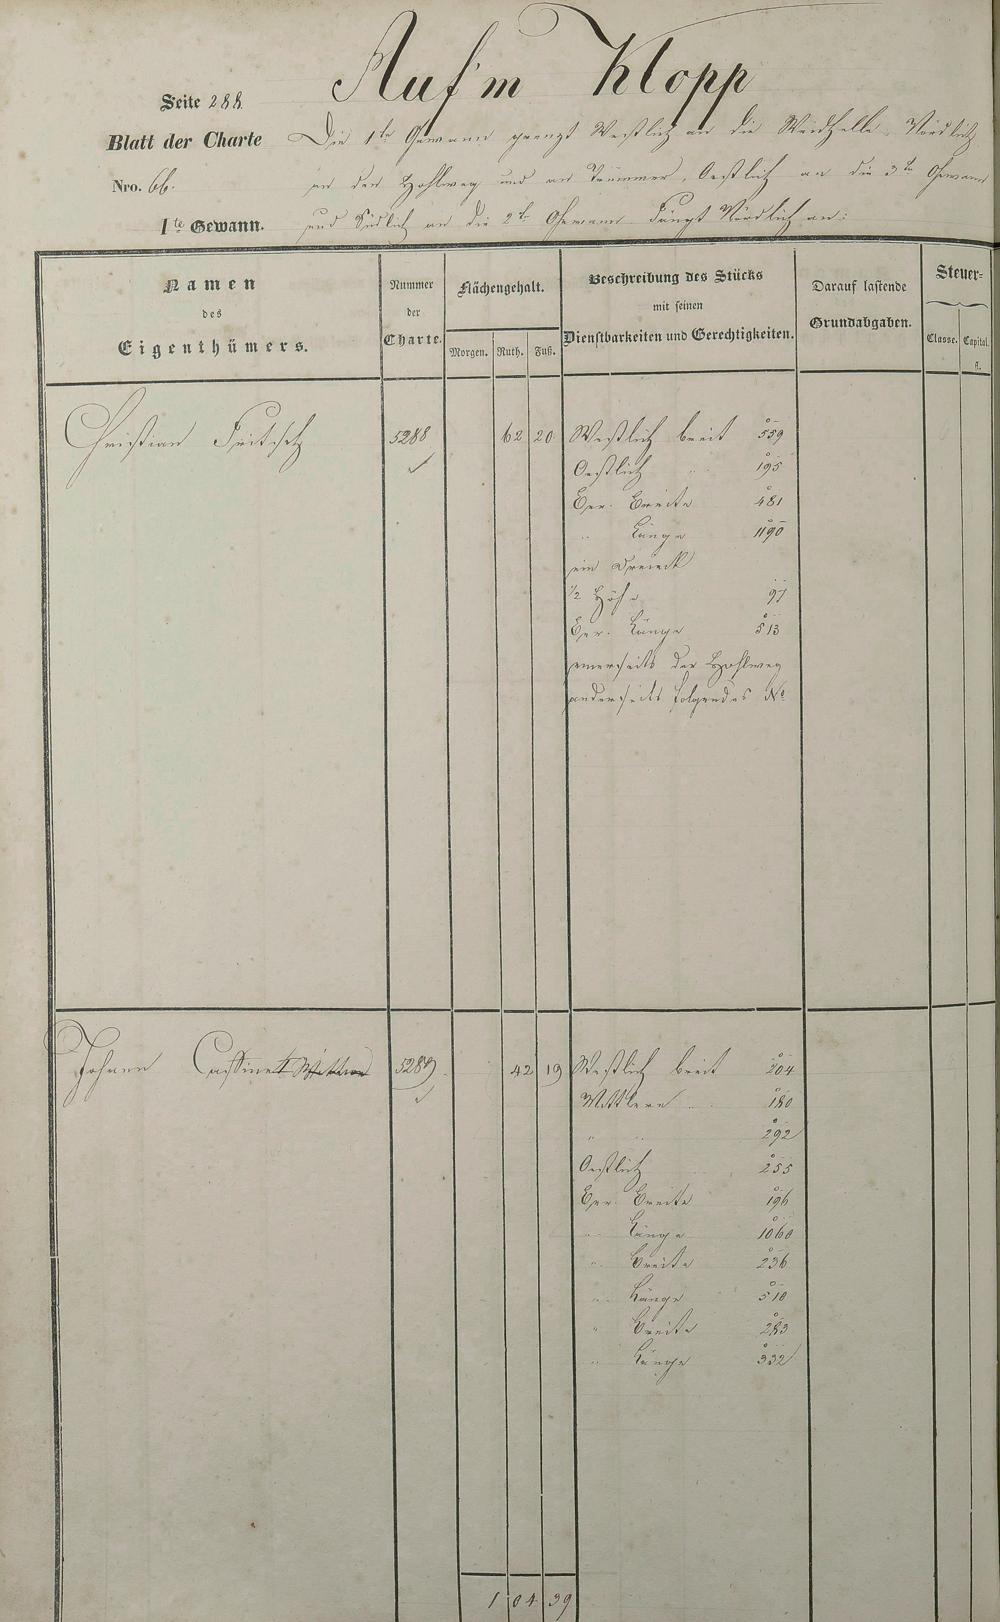 Auf'm Klopp
Seite 288
Blatt der Charte
Nro. 66.
1te Gewann.
Die 1te Gewann grenzt Westlich an die Nordlich
an den Hohlweg und an Trümmer, Oestlich an die 3te Gewann
und Südlich an die 2te Gewann. Fängt Nördlich an:
Namen
des
Eigenthümers.
Nummer
der
Charte.
Flächengehalt.
Morgen. Ruth. Fuß.
Beschreibung des Stücks
mit seinen
Dienstbarkeiten und Gerechtigkeiten.
Darauf lastende
Grundabgaben.
Steuer=
Classe. Capital.
fl.
Christian Fritsch 5288 62 20 Westlich breit 559
Oestlich " 195
Ber. Breite 481
" Länge 1190
ein Dreieck
1/2 Höhe 97
Ber. Länge 513
einerseits der Hohlweg
anderseits folgendes No
Johann 5289 42 19 Westlich breit 204
Mittlere " 180
" " 292
Oestlich 255
Ber. Breite 196
" Länge 1060
" Breite 236
" Länge 510
" Breite 283
" Länge 332
1 04 39